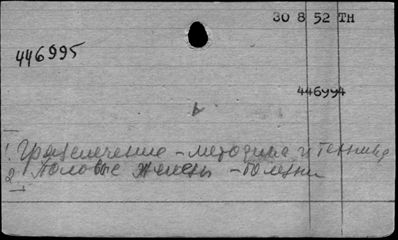 30 8 52 TH
446995
446994
1. Грязелечение - методика и техника
2. Половые железы - болезни